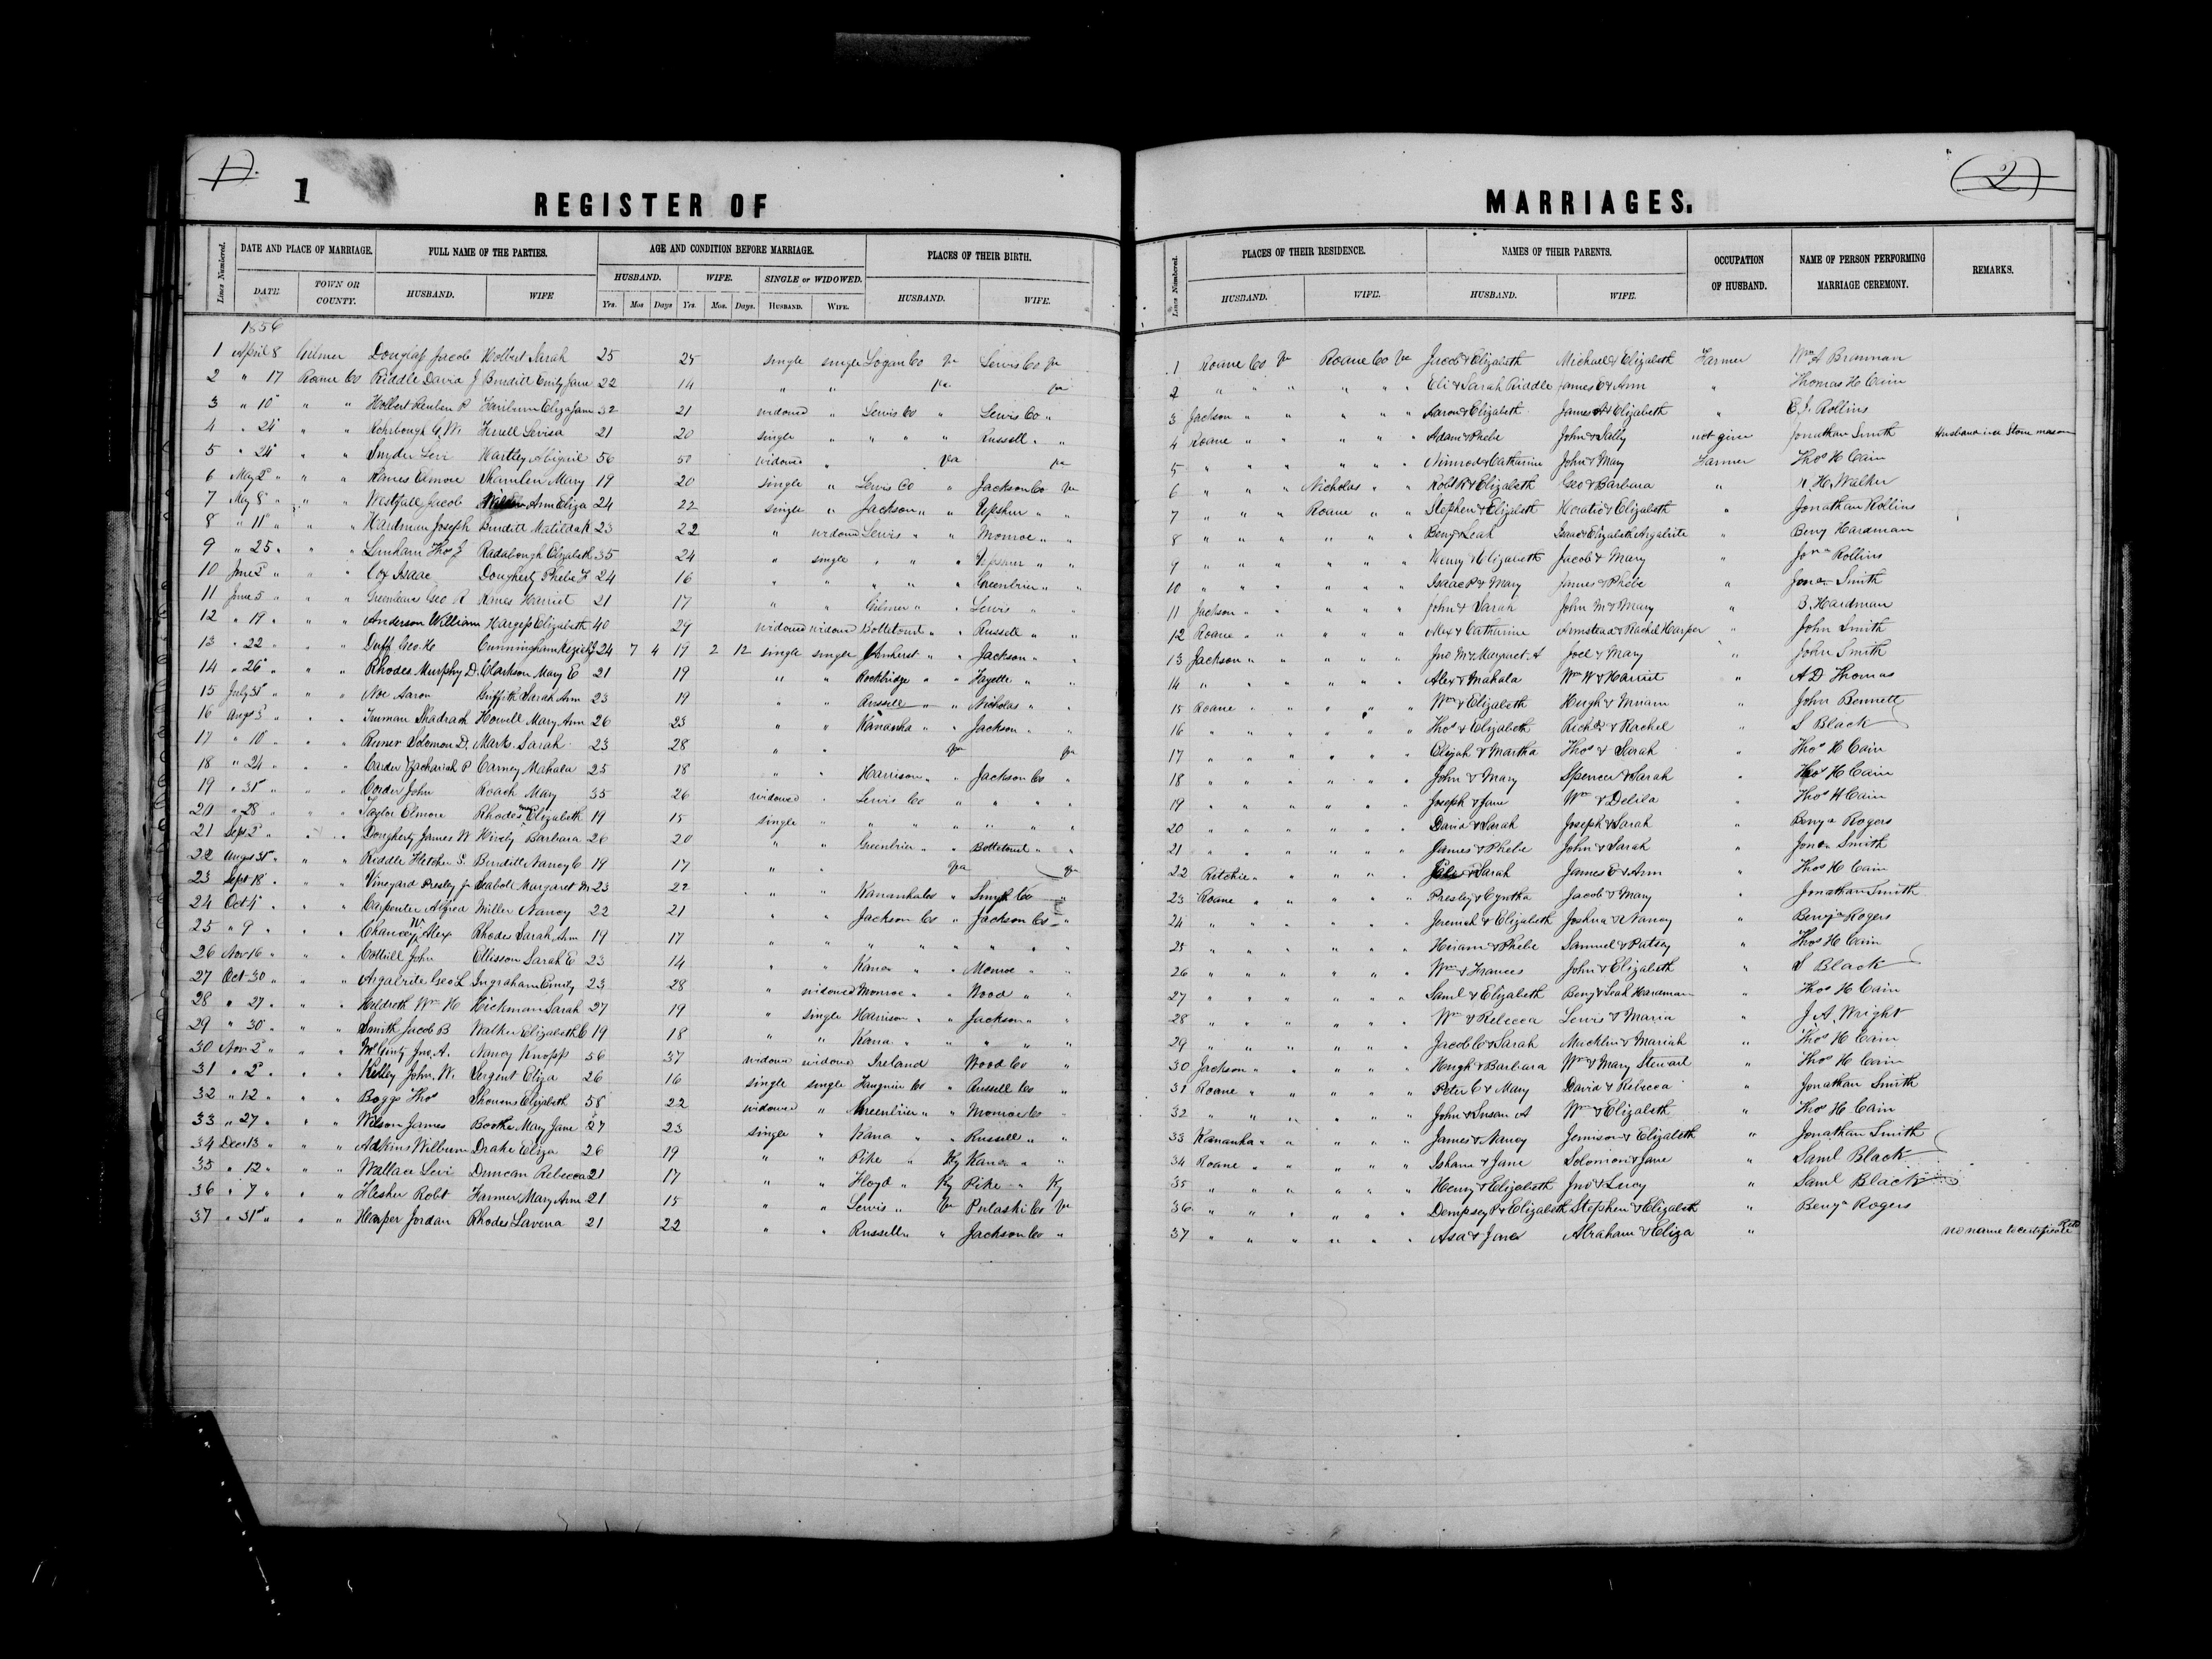 1
1
REGISTER OF
Lines Numbered. DATE AND PLACE OF MARRIAGE. FULL NAME OF THE PARTIES. AGE AND CONDITION BEFORE MARRIAGE. PLACES OF THEIR BIRTH.
HUSBAND. WIFE. SINGLE or WIDOWED.
DATE TOWN OR COUNTY. HUSBAND. WIFE Yrs. Mos Days Yrs. Mos. Days. HUSBAND. WIFE. HUSBAND. WIFE.
1856
1 April 8 Gilmer Douglass Jacob Holbert Sarah 25 25 single single Logan Co Va Lewis Co Va
2 " 17 Roane Co Riddle David J Burditt Emily Jane 22 14 " " Va Va
3 " 10" " " Holbert Reuben P Eliza Jane 32 21 widowed " Lewis Co " Lewis Co "
4 " 24" " " Rohrbough G.W. Levisa 21 20 single " " " " Russell " "
5 " 24" " " Snyder Levi Hartley Abigail 56 50 widowed " Va Va
6 May 2" " " Elmore Mary 19 20 single " Lewis Co " Jackson Co Va
7 May 8" " " Westfall Jacob Ann Eliza 24 22 single " Jackson " " Upshur " "
8 " 11" " " Hardman Joseph Burditt Matilda 23 22 " widowed Lewis " " Monroe " "
9 " 25 " " " Thos J Radabough Elizabeth 35 24 " single " " " Upshur " "
10 June 2" " " Cox Isaac Dougherty Phebe 24 16 " " " " " Greenbrier " "
11 June 5 " " " Greenleave Geo R Harriet 21 17 " " Gilmer " " Lewis " "
12 " 19 " " " Anderson William Hargess Elizabeth 40 29 widowed widowed Bottetourt " " Russell " "
13 " 22 " " " Duff Geo. Cunningham 24 7 4 19 2 12 single single Amherst " " Jackson " "
14 " 26" " " Rhodes Murphy D. Clarkson Mary E 21 19 " " Rockbridge " " Fayette " "
15 July 31" " " Noe Aaron Griffith Sarah Ann 23 19 " " Russell " " Nicholas " "
16 Augs 3" " " Truman Shadrach Howell Mary Ann 26 23 " " Kanawha " " Jackson " "
17 " 10 " " " Solomon D. Marks Sarah 23 28 " " Va Va
18 " 24 " " " Carder Zachariah P Carney Mahala 25 18 " " Harrison " " Jackson Co "
19 " 31" " " Corder John Roach Mary 35 26 widowed " Lewis Co " " " "
20 " 28 " " Taylor Elmore Rhodes Elizabeth 19 15 single " " " " " " "
21 Sept 2" " " Dougherty James W Hively Barbara 26 20 " " Greenbrier " " Bottetourt " "
22 Augs 31" " " Riddle Fletcher S. Burditt Nancy C 19 17 " " Va Va
23 Sept 18 " " " Vineyard Presley jr Seabolt Margaret M 23 22 " " Kanawha Co " Smyth Co "
24 Oct 4" " " Carpenter Alfred Miller Nancy 22 21 " " Jackson Co " Jackson Co "
25 " 9 " " " Chancey W. Alex Rhodes Sarah Ann 19 17 " " " " " " " "
26 Nov 16 " " " Cottrill John Ellisson Sarah E 23 14 " " Kana " " Monroe " "
27 Oct 30 " " " Argabrite Geo L Ingraham Emily 23 28 " widowed Monroe " " Wood " "
28 " 27 " " " Hildreth Wm H Hickman Sarah 27 19 " single Harrison " " Jackson " "
29 " 30" " " Smith Jacob B Walker Elizabeth C 19 18 " " Kana " " " " "
30 Nov 2" " " McGinty Jno. A. Nancy Knopp 56 37 widowed widowed Ireland Wood Co "
31 " 2" " " John W. Sergent Eliza 26 16 single single Fauquier Co " Russell Co "
32 " 12 " " " Boggs Thos Elizabeth 58 22 widowed " Greenbrier " " Monroe Co "
33 " 27 " " " Wilson James Boothe Mary Jane 27 23 single " Kana " " Russell " "
34 Dec 13 " " " Adkins Wilburn Drake Eliza 26 19 " " Pike " Ky Kana " "
35 " 12 " " " Wallace Levi Duncan Rebecca 21 17 " " Floyd " Ky Pike " Ky
36 " 7 " " " Flesher Robt Farmer Mary Ann 21 15 " " Lewis " Va Pulaski Co Va
37 " 31st " " " Harper Jordan Rhodes Lavena 21 22 " " Russell " " Jackson Co "
2
MARRIAGES.
Lines Numbered. PLACES OF THEIR RESIDENCE. NAMES OF THEIR PARENTS. OCCUPATION OF HUSBAND. NAME OF PERSON PERFORMING MARRIAGE CEREMONY. REMARKS.
HUSBAND. WIFE. HUSBAND. WIFE.
1 Roane Co Va Roane Co Va Jacob & Elizabeth Michael & Elizabeth Farmer Wm A Brannan
2 " " " " " " Eli & Sarah Riddle James E & Ann " Thomas H Cain
3 Jackson " " " " " Aaron & Elizabeth James & Elizabeth " Rollins
4 Roane " " " " " Adam & Phebe John & Sally not given Jonathan Smith Husband is a Stone mason
5 " " " " " " Nimrod & Catharine John & Mary Farmer Thos H Cain
6 " " " Nicholas " " Robt & Elizabeth Geo & Barbara " H. Walker
7 " " " Roane " " Stephen & Elizabeth Horatio & Elizabeth " Jonathan Rollins
8 " " " " " " Benj & Leah Isaac & Elizabeth Argabrite " Benj Hardman
9 " " " " " " Henry & Elizabeth Jacob & Mary " Jona Rollins
10 " " " " " " Isaac P & Mary James & Phebe " Jona Smith
11 Jackson " " " " " John & Sarah John M & Mary " B. Hardman
12 Roane " " " " " Alex & Catharine Armstead & Rachel Harper " John Smith
13 Jackson " " " " " Jno M & Margaret A Joel & Mary " John Smith
14 " " " " " " Alex & Mahala Wm W & Harriet " A D Thomas
15 Roane " " " " " Wm & Elizabeth Hugh & Miriam " John Bennett
16 " " " " " " Thos & Elizabeth Richd & Rachel " S Black
17 " " " " " " Elijah & Martha Thos & Sarah " Thos H Cain
18 " " " " " " John & Mary Spencer & Sarah " Thos H Cain
19 " " " " " " Joseph & Jane Wm & Delila " Thos H Cain
20 " " " " " " David & Sarah Joseph & Sarah " Benja Rogers
21 " " " " " " James & Phebe John & Sarah " Jona Smith
22 Ritchie " " " " " & Sarah James E & Ann " Thos H Cain
23 Roane " " " " " Presley & Cyntha Jacob & Mary " Jonathan Smith
24 " " " " " " Jeremiah & Elizabeth Joshua & Nancy " Benja Rogers
25 " " " " " " Hiram & Phebe Samuel & Patsey " Thos H Cain
26 " " " " " " Wm & Frances John & Elizabeth " S Black
27 " " " " " " Saml & Elizabeth Benj & Leah Hardman " Thos H Cain
28 " " " " " " Wm & Rebecca Lewis & Maria " J A Wright
29 " " " " " " Jacob C & Sarah & Mariah " Thos H Cain
30 Jackson " " " " " Hugh & Barbara Wm & Mary Stewart " Thos H Cain
31 Roane " " " " " Peter C & Mary David & Rebecca " Jonathan Smith
32 " " " " " " John & Susan A Wm & Elizabeth " Thos H Cain
33 Kanawha " " " " " James & Nancy Jemison & Elizabeth " Jonathan Smith
34 Roane " " " " " Isham & Jane Solomon & Jane " Saml Black
35 " " " " " " Henry & Elizabeth Jno & Lucy " Saml Black
36 " " " " " " Dempsey P & Elizabeth Stephen & Elizabeth " Benja Rogers
37 " " " " " " Asa & Jane Abraham & Eliza " no name to certificate